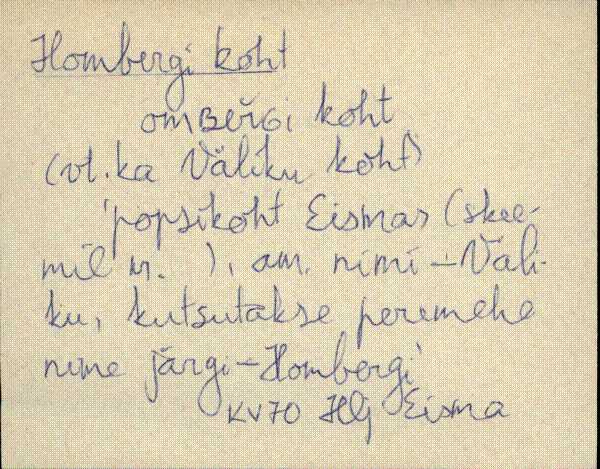 Hombergi koht
omBeřGi koht
(vt. ka Väliku koht)
'popsikoht Eismas (skee-
mil nr. ), am. nimi - Väli-
ku, kutsutakse peremehe
nime järgi - Hombergi'
KV70 HG Eisma